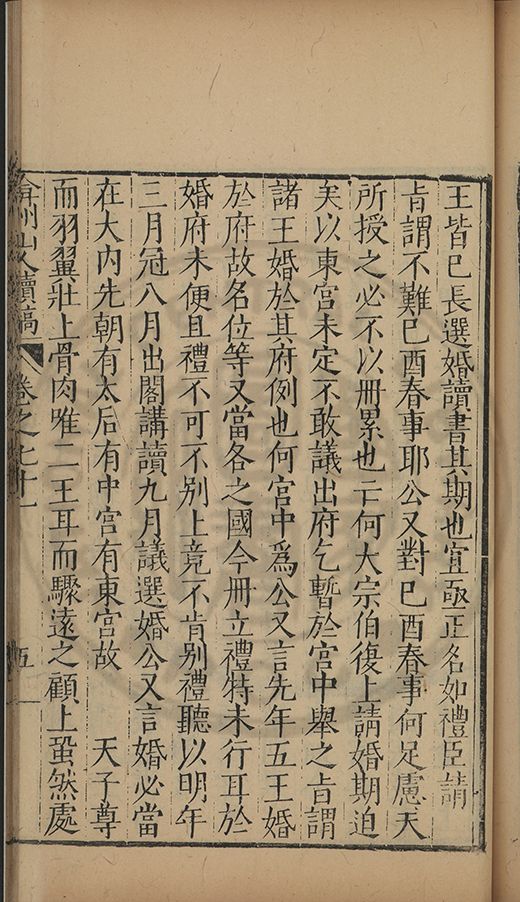 王皆已長選婚讀書其期也宜亟正名如禮臣請
肯謂不難已酉春事耶公又對已酉春事何足慮天
所授之必不以冊累也亡何大宗伯復上請婚期迫
矣以東宮未定不敢議出府乞暫於宮中舉之肯謂
諸王婚於其府例也何宮中為公又言先年五王婚
於府故名位等又當各之國今冊立禮特未行耳於
婚府未便且禮不可不别上竟不肯别禮聽以明年
三月冠八月出閣講讀九月議選婚公又言婚必當
在大内先朝有太后有中宮有東宮故　天子尊
而羽翼壯上骨肉唯二王耳而驟遠之顧上煢然處
弇州山人續稿 卷之七十一 五